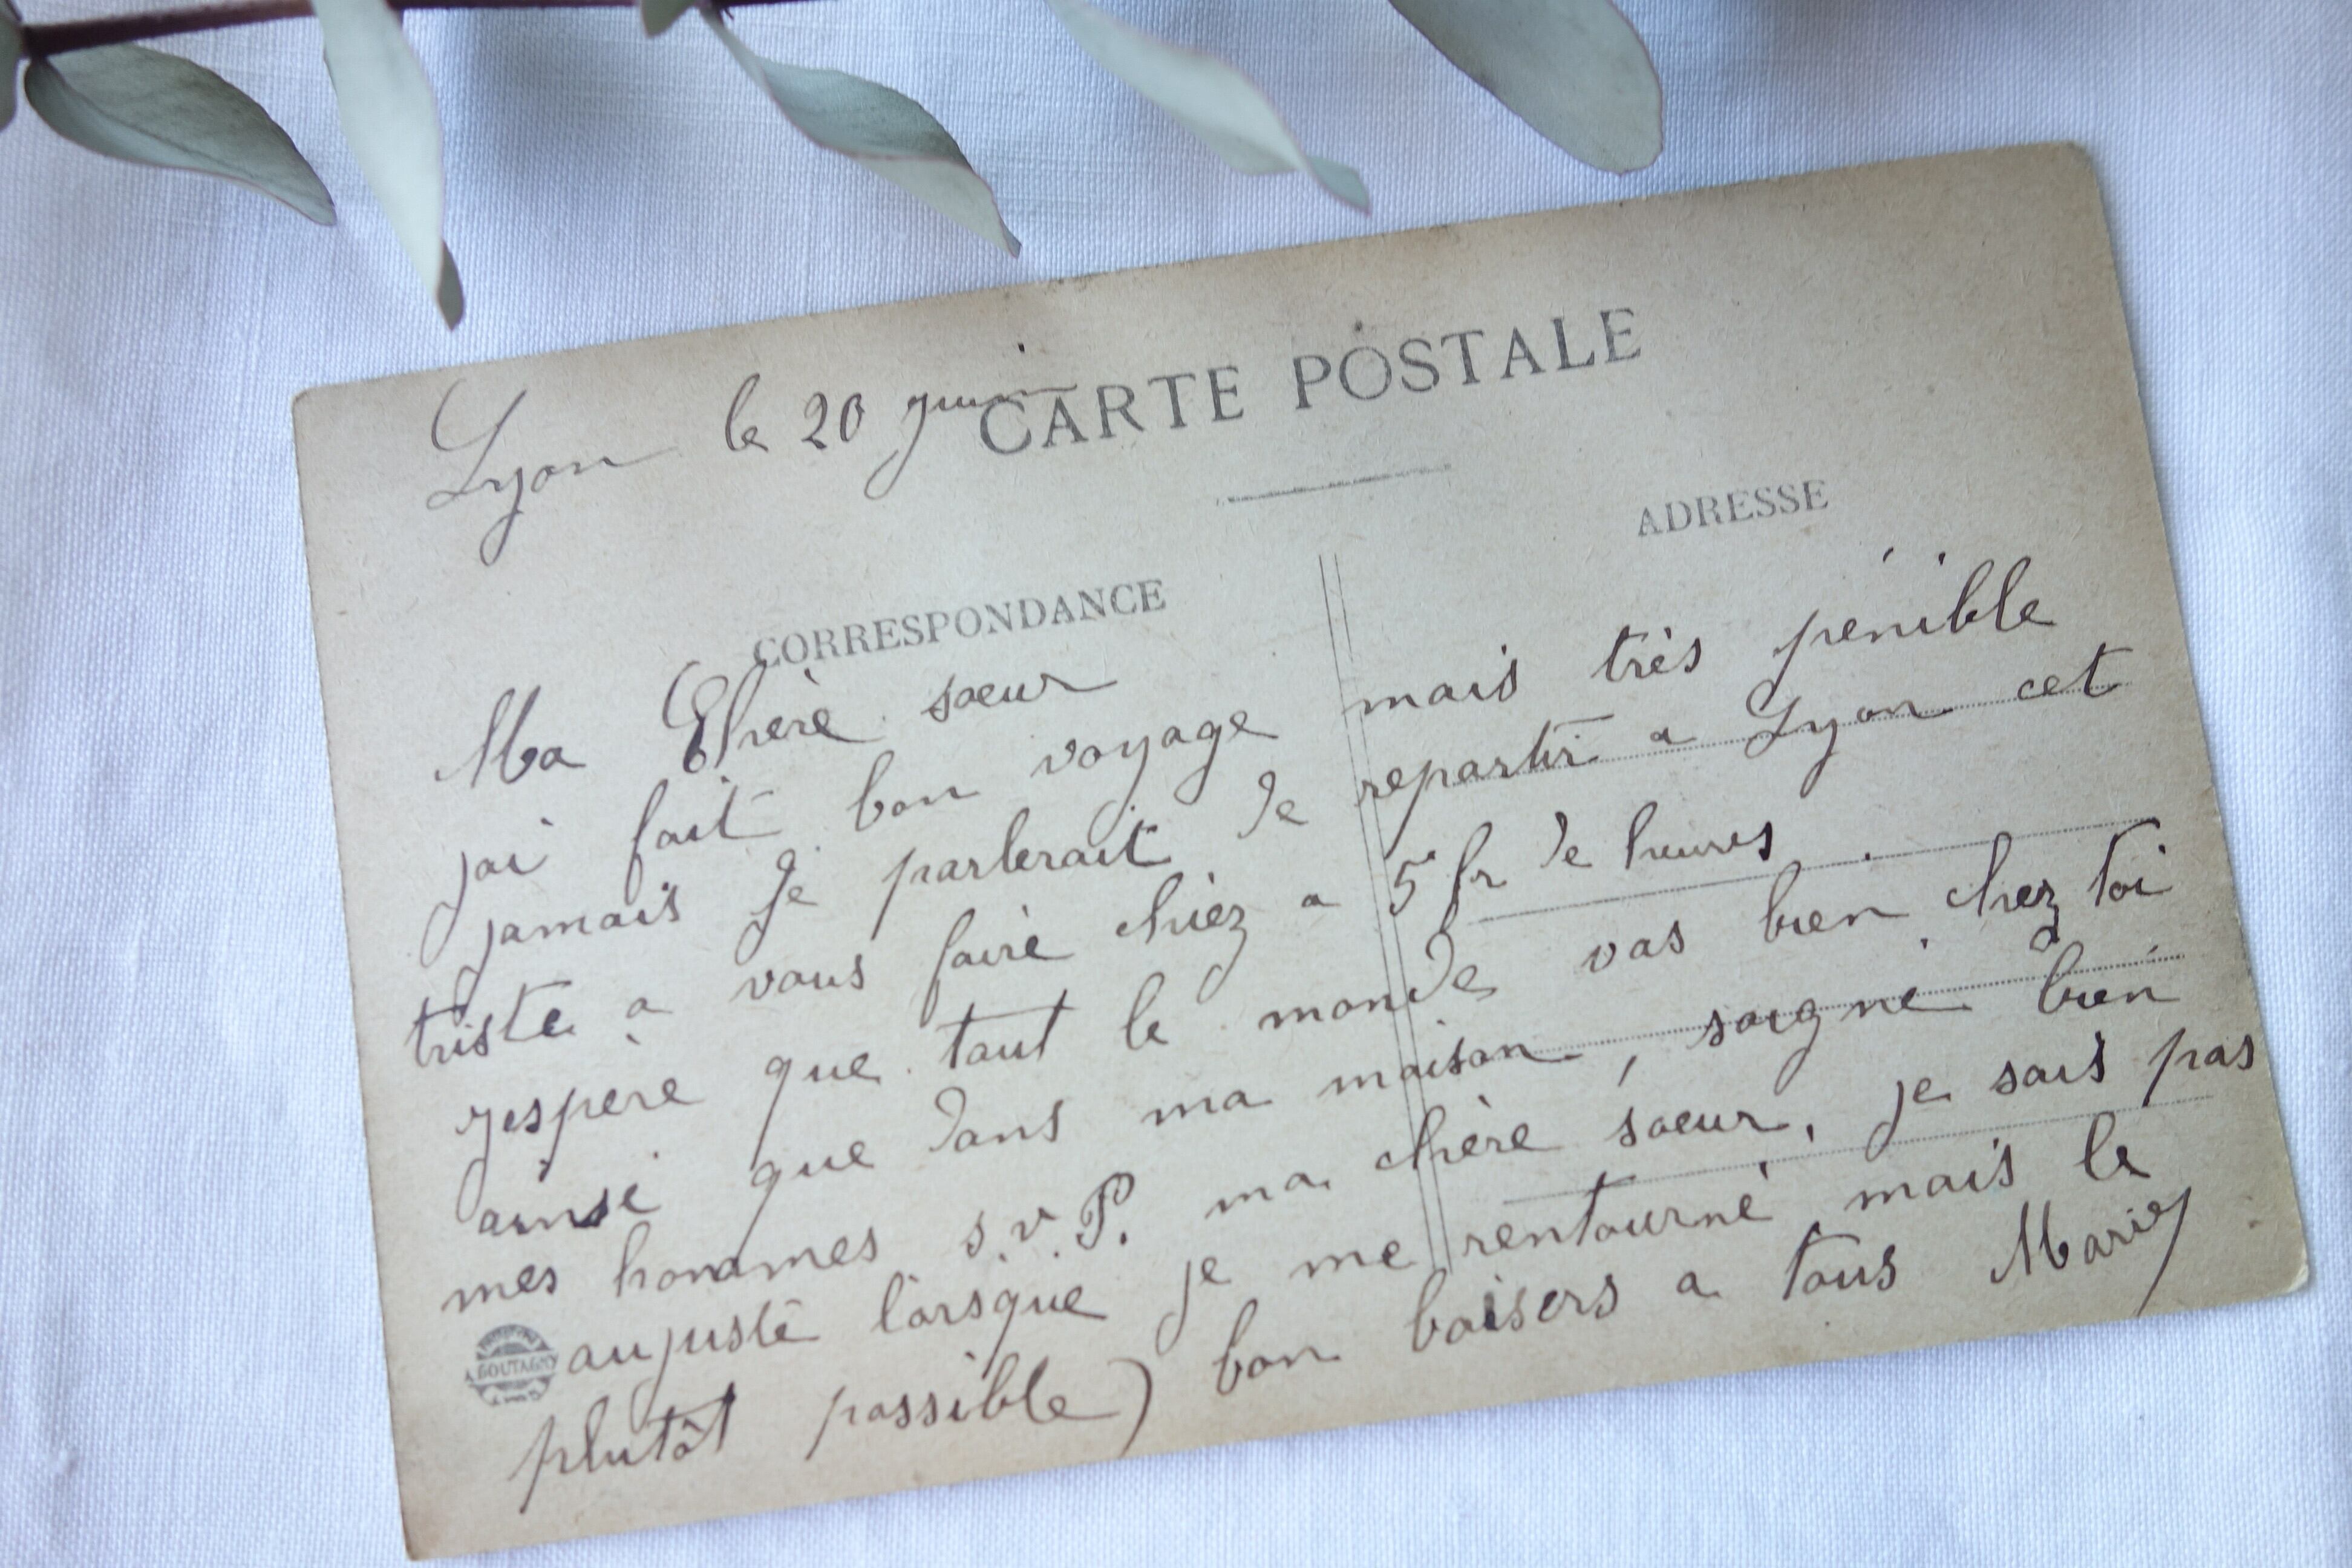 Lyon le 20 guin
CARTE POSTALE
CORRESPONDANCE
ADRESSE
Ma Chère soeur
jai fait bon voyage mais très pénible
jamais je parlerait de repartir a Lyon cet
triste a vous faire chiez a 5 fr de heures
jespère que tout le monde vas bien chez toi
ainsi que dans ma maison, soigne bien
mes hommes s.v.P. ma chère soeur, je sais pas
aujuste lorsque je me rentourne mais le
plutôt possible) bon baisers a tous Marie
A. BOUTAGNY